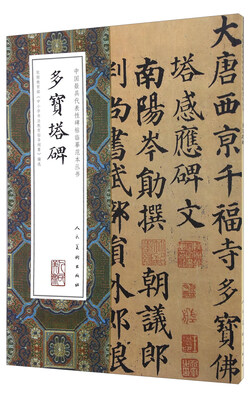 大唐西京千福寺多寶佛
塔感應碑文
南陽岑勛撰 朝議郎
判尚書武部員外郎
中国最具代表性碑帖临摹范本丛书
多寶塔碑
人民美術出版社